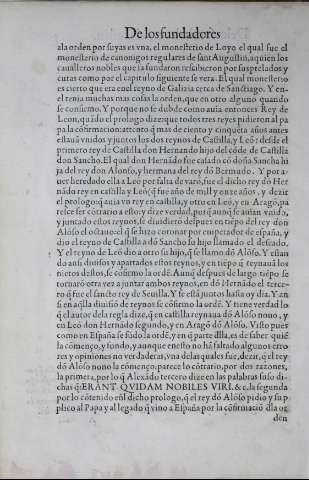 De los fundadores
ala orden por suyas es vna, el monesterio de Loyo el qual fue el
monesterio de canonigos regulares de sant Augustin, a quien los
caualleros nobles que la fundaron rescibieron por sus prelados y
curas como por el capitulo siguiente se vera. El qual monesterio
es cierto que era en el reyno de Galizia cerca de Sanctiago. Y en
el tenia muchas mas cosas la orden, que en otro alguno quando
se confirmo. Y porque no se dubde como auia entonces Rey de
Leon, quãdo el prologo dize que todos tres reyes pidieron al pa
pa la cõfirmacion: attento q̃ mas de ciento y cinquẽta años antes
estauã vnidos y juntos los dos reynos de Castilla, y Leõ: desde el
primero rey de Castilla don Hernando hijo del cõde de Castilla
don Sancho. El qual don Hernãdo fue casado cõ doña Sancha hi
ja del rey don Alonso, y hermana del rey dõ Bermudo. Y por a-
uer heredado ella a Leõ por falta de varõ, fue el dicho rey dõ Her
nãdo rey en castilla y Leõ, q̃ fue año de mil y onze años, y dezir
el prologo, q̃ auia vn rey en castilla, y otro en Leõ, y en Aragõ, pa
resce ser cõtrario a esto y dize verdad, porq̃ aunq̃ se auian vnido,
y juntado estos reynos, se diuidierõ despues en tiẽpo del rey don
Alõso el octauo: el q̃ se hizo coronar por emperador de españa, y
dio el reyno de Castilla a dõ Sancho su hijo llamado el desseado.
Y el reyno de Leõ dio a otro su hijo, q̃ se llamo dõ Alõso. Y estan
do ansi diuisos y apartados estos reynos, y en tiẽpo q̃ reynauã los
nietos destos, se cõfirmo la ordẽ. Aunq̃ despues de largo tiẽpo se
tornarõ otra vez a juntar ambos reynos, en dõ Hernãdo el terce-
ro q̃ fue el sancto rey de Seuilla. Y se estã juntos hasta oy dia. Y an
si en aq̃lla diuisiõ de reynos se cõfirmo la ordẽ. Y tiene verdad lo
q̃ el autor dela regla dize, q̃ en castilla reynaua dõ Alõso nono, y
en Leõ don Hernãdo segundo, y en Aragõ dõ Alõso. Visto pues
como en España se fũdo la ordẽ, y en q̃ parte dlla, es de saber quiẽ
la começo, y fundo, y aunque enesto no hã faltado algunos erro
res y opiniones no verdaderas, vna delas quales fue, dezir, q̃ el rey
dõ Alõso nono la começo: paresce lo cõtrario, por dos razones,
la primera, por lo q̃ Alexãdo tercero dize en las palabras suso di-
chas q̃: ERANT QVIDAM NOBILES VIRI. &c. la segunda
por lo cõtenido eñl dicho prologo, q̃ el rey dõ Alõso pidio y su p
plico al Papa y al legado q̃ vino a España por la cõfirmaciõ dla or
den